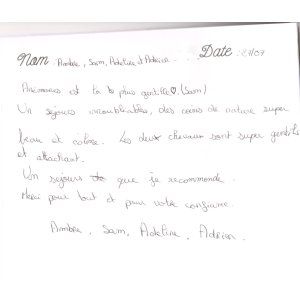 Nom : Ambre, Sam, Adeline et Adrien. Date : 27/07
et ta b plus gentille ♡. (Sam)
Un séjours inoubliables, des cœurs de nature super
beau et colore. Les deux chevaux sont super gentils
et attachant.
Un séjours que je recommande.
Merci pour tout et pour votre confiance.
Ambre, Sam, Adeline, Adrien.